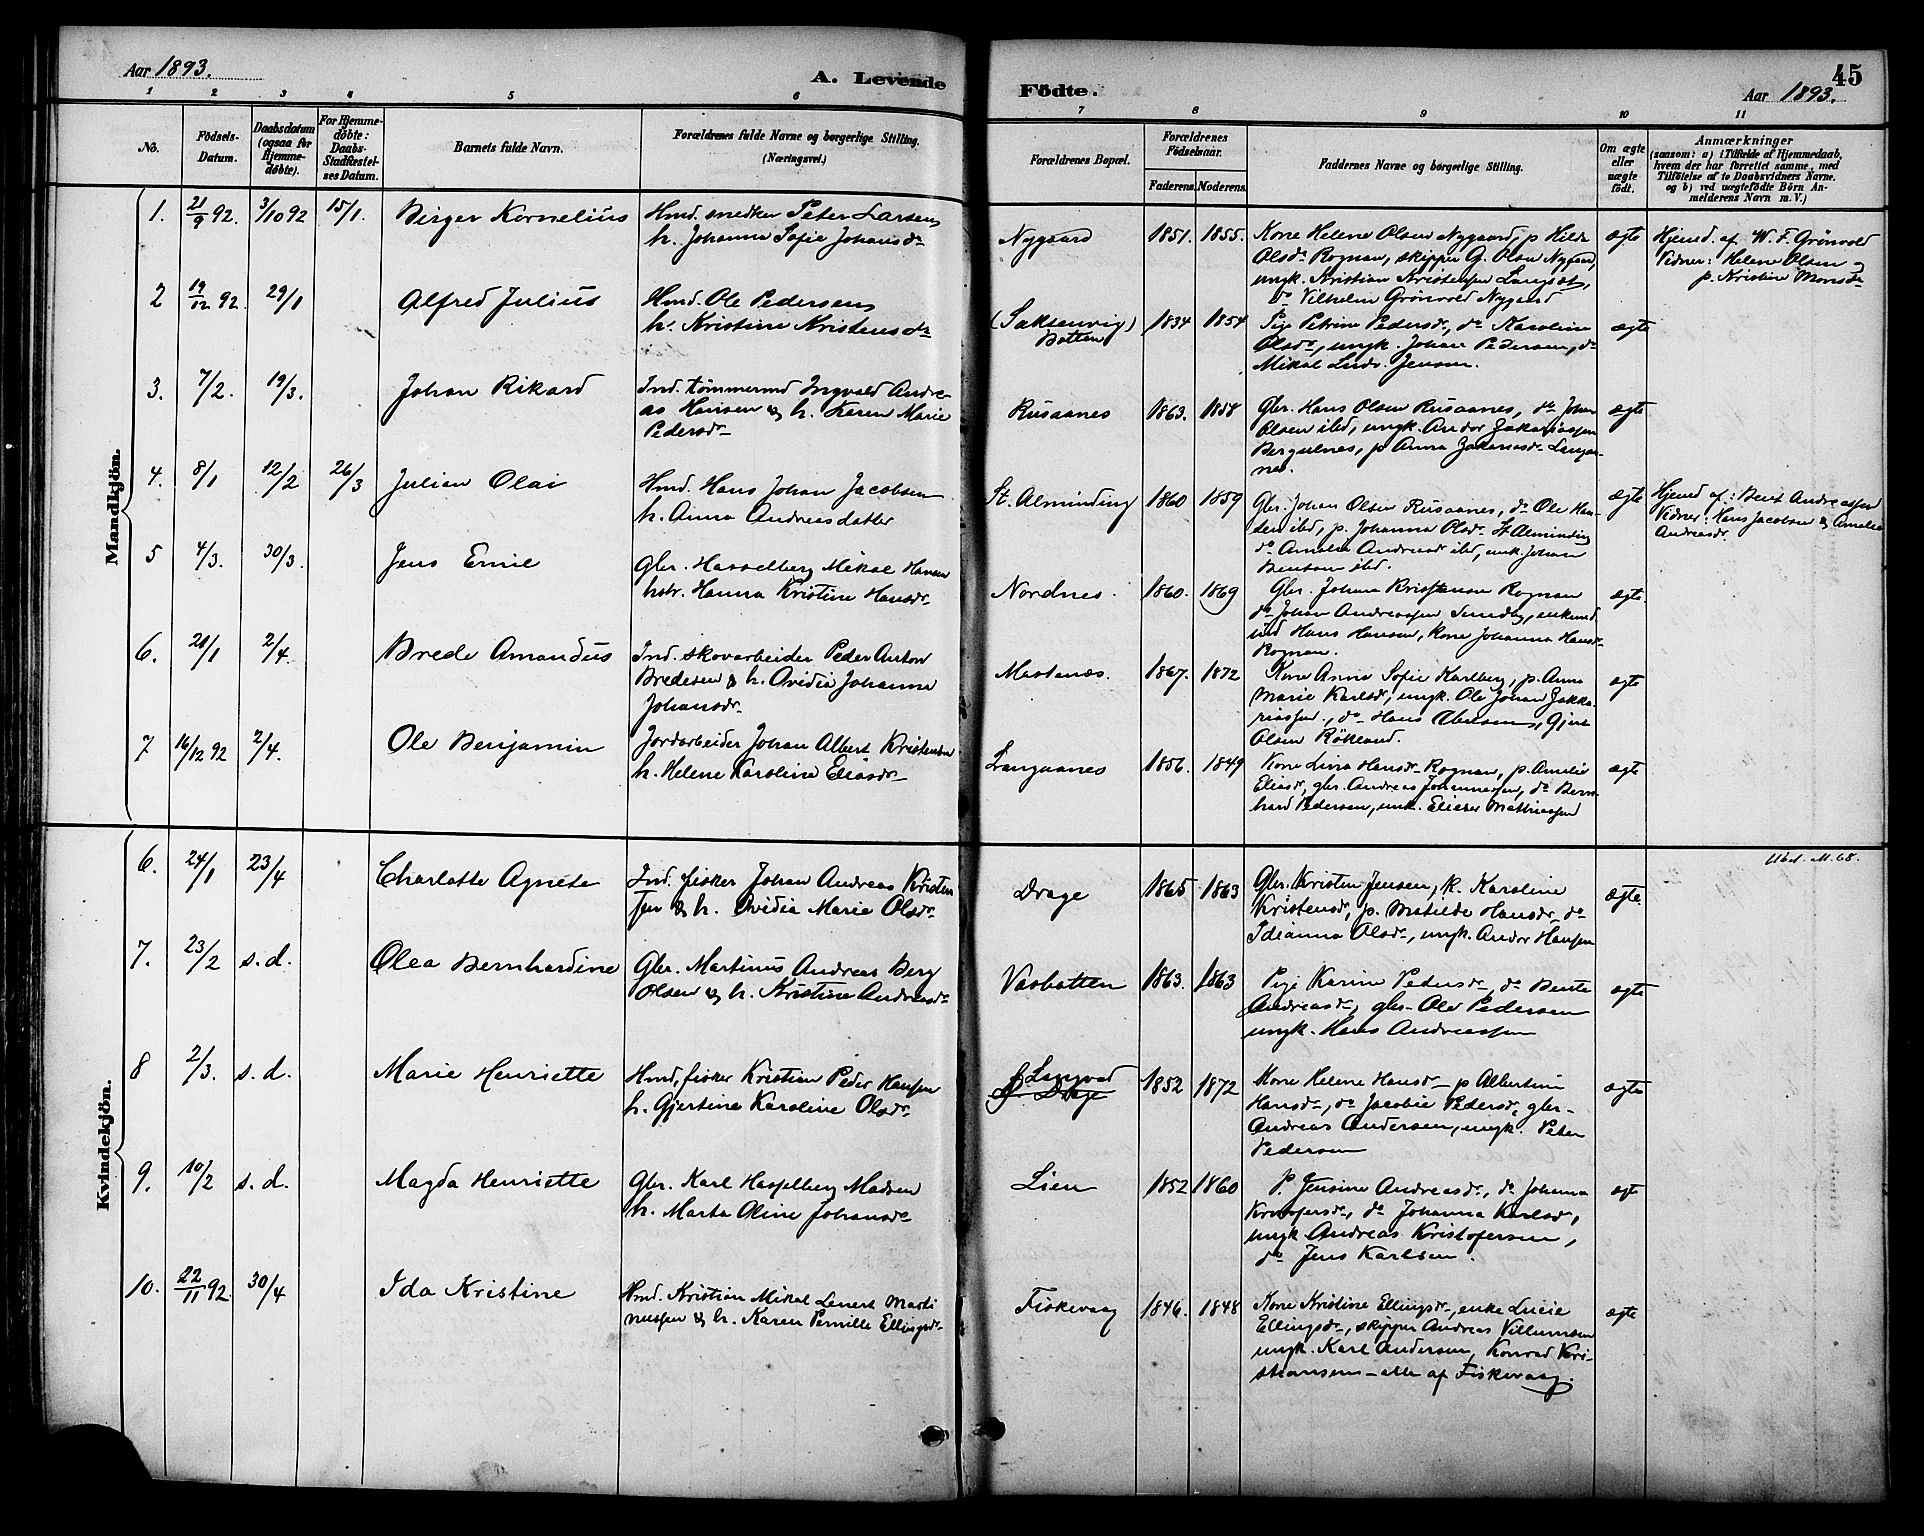 Aar 1893.
A. Levende
Fødte.
45
Aar 1893.
1 2 3 4 5 6 7 8 9 10 11
No.
Födsels-
Datum.
Daabsdatum
(ogsaa for
Hjemme-
døbte).
For Hjemme-
døbte:
Daabs-
Stadfæstel-
ses Datum.
Barnets fulde Navn.
Forældrenes fulde Navne og borgerlige Stilling.
(Næringsvei.)
Forældrenes Bopæl.
Forældrenes
Fødselsaar.
Faderens. Moderens.
Faddernes Navne og borgerlige Stilling.
Om ægte
eller
uægte
født.
Anmærkninger
(saasom: a) i Tilfælde af Hjemmedaab,
hvem der har forrettet samme, med
Tilføielse af to Daabsvidners Navne,
og b) ved uægtefødte Børn An-
melderens Navn m. V.)
Mandkjön.
1. 21/9 92. 3/10 92 15/1. Birger Kornelius
Hmd. snedker Peter Larsen,
h. Johanna Sofie Johansdr
Nygaard 1851. 1855.
Kone Helene Olsen Nygaard, p. Hilda
Olsdr Rognan, skipper G. Olsen Nygaard,
ungk. Kristian Kristensen Langset,
do Vilhelm Grönvold Nygaard
ægte
Hjemd. af W. F. Grönvold
Vidner: Helene Olsen og
p. Kristine Monsdr
2 19/12 92. 29/1 Alfred Julius
Hmd. Ole Pedersen,
h. Kristine Kristensdr
(Saksenvig)
Botten
1834 1854
Pige Petrine Pedersdr, do Karoline
Olsdr, ungk. Johan Pedersen, do
Mikal Ludv. Jensen.
ægte
3. 7/2. 19/3. Johan Rikard
Ind. tömmermd Ingvald Andre-
as Hansen & h. Karen Marie
Pedersdr
Rusaanes 1863. 1858
Gbr. Hans Olsen Rusaanes, do Johan
Olsen ibd, ungk. Andor Zakariassen
Bergulnes, p. Anna Johansdr Langaa-
nes.
ægte
4. 8/1 12/2 26/3 Julian Olai
Hmd. Hans Johan Jacobsen
h. Anna Andreasdatter
St. Alminding 1860 1859
Gbr. Johan Olsen Rusaanes, do Ole Han-
sen ibd, p. Johanna Olsdr St Alminding
do Amalie Andreasdr ibd, unk. Johan
Bentsen ibd.
ægte
Hjemd af: Bent Andreassen
Vidner: Hans Jacobsen & Amalie
Andreasdr.
5 4/3. 30/3. Jens Emil
Gbr. Hasselberg Mikal Hansen
hstr. Hanna Kristine Hansdr
Nordnes. 1860. 1869
Gbr. Johan Kristensen Rognan
do Johan Andreassen Sundby, enkemd
ind Hans Hansen, kone Johanna Hansdr
Rognan.
ægte.
6. 21/1 2/4. Brede Amandus
Ind. skovarbeider Peder Anton
Bredesen & h. Ovidia Johanna
Johansdr
Mestenes. 1867. 1872
Kone Anne Sofie Karlberg, p. Anna
Marie Karlsdr, ungk. Ole Johan Zakka-
riassen, do Hans Ibensen, Gjert
Olsen Røkland.
ægte
7 16/12 92 2/4. Ole Benjamin
Jordarbeider Johan Albert Kristensen
h. Helene Karoline Eliasdr
Langaanes 1856. 1849
Kone Lina Hansdr Rognan, p. Amalie
Eliasdr, gbr. Andreas Johannessen, do Bern-
hard Pedersen, unk. Elieser Mathiassen
ægte
Kvindekjön.
6. 24/1 23/4 Charlotte Agnete
Ind. fisker Johan Andreas Kristen-
sen & h. Ovidia Marie Olsdr
Drage 1865 1863
Gbr. Kristen Jensen, k. Karoline
Kristensdr, p. Matilde Hansdr do
Idianna Olsdr, ungk. Andor Hansen
ægte.
7. 23/2 s. d. Olea Bernhardine
Gbr. Martinus Andreas Berg
Olsen & h. Kristine Andreasdr
Vasbotten 1863. 1863
Pige Karine Pedersdr, do Bente
Andreasdr, gbr. Ole Pedersen
ungk. Hans Andreassen
ægte
8 2/3. s. d. Marie Henriette
Hmd, fisker Kristian Peder Hansen
h. Gjertine Karoline Olsdr
Langvad
Drage
1852 1872
Kone Helene Hansdr p Albertine
Hansdr, do Jacobie Pedersdr, gbr.
Andreas Andersen, ungk. Peter
Pedersen
ægte
9. 10/2 s. d. Magda Henriette
Gbr. Karl Hasselberg Madsen
h. Marta Oline Johansdr
Lien 1852 1860
P. Jensine Andreasdr, do Johanna
Kristofersdr, do Johanna Karlsdr,
ungk Andreas Kristofersen,
do Jens Karlsen.
ægte
10. 22/11 92. 30/4 Ida Kristine
Hmd. Kristian Mikal Lenert Marti
nussen & h. Karen Pernille Ellingsdr
Fiskevaag 1846. 1848
Kone Kristine Ellingsdr, enke Lucie
Ellingsdr, skipper Andreas Villumsen
ungk. Karl Andersen, Konrad Kri-
stiansen – alle af Fiskevaag.
ægte